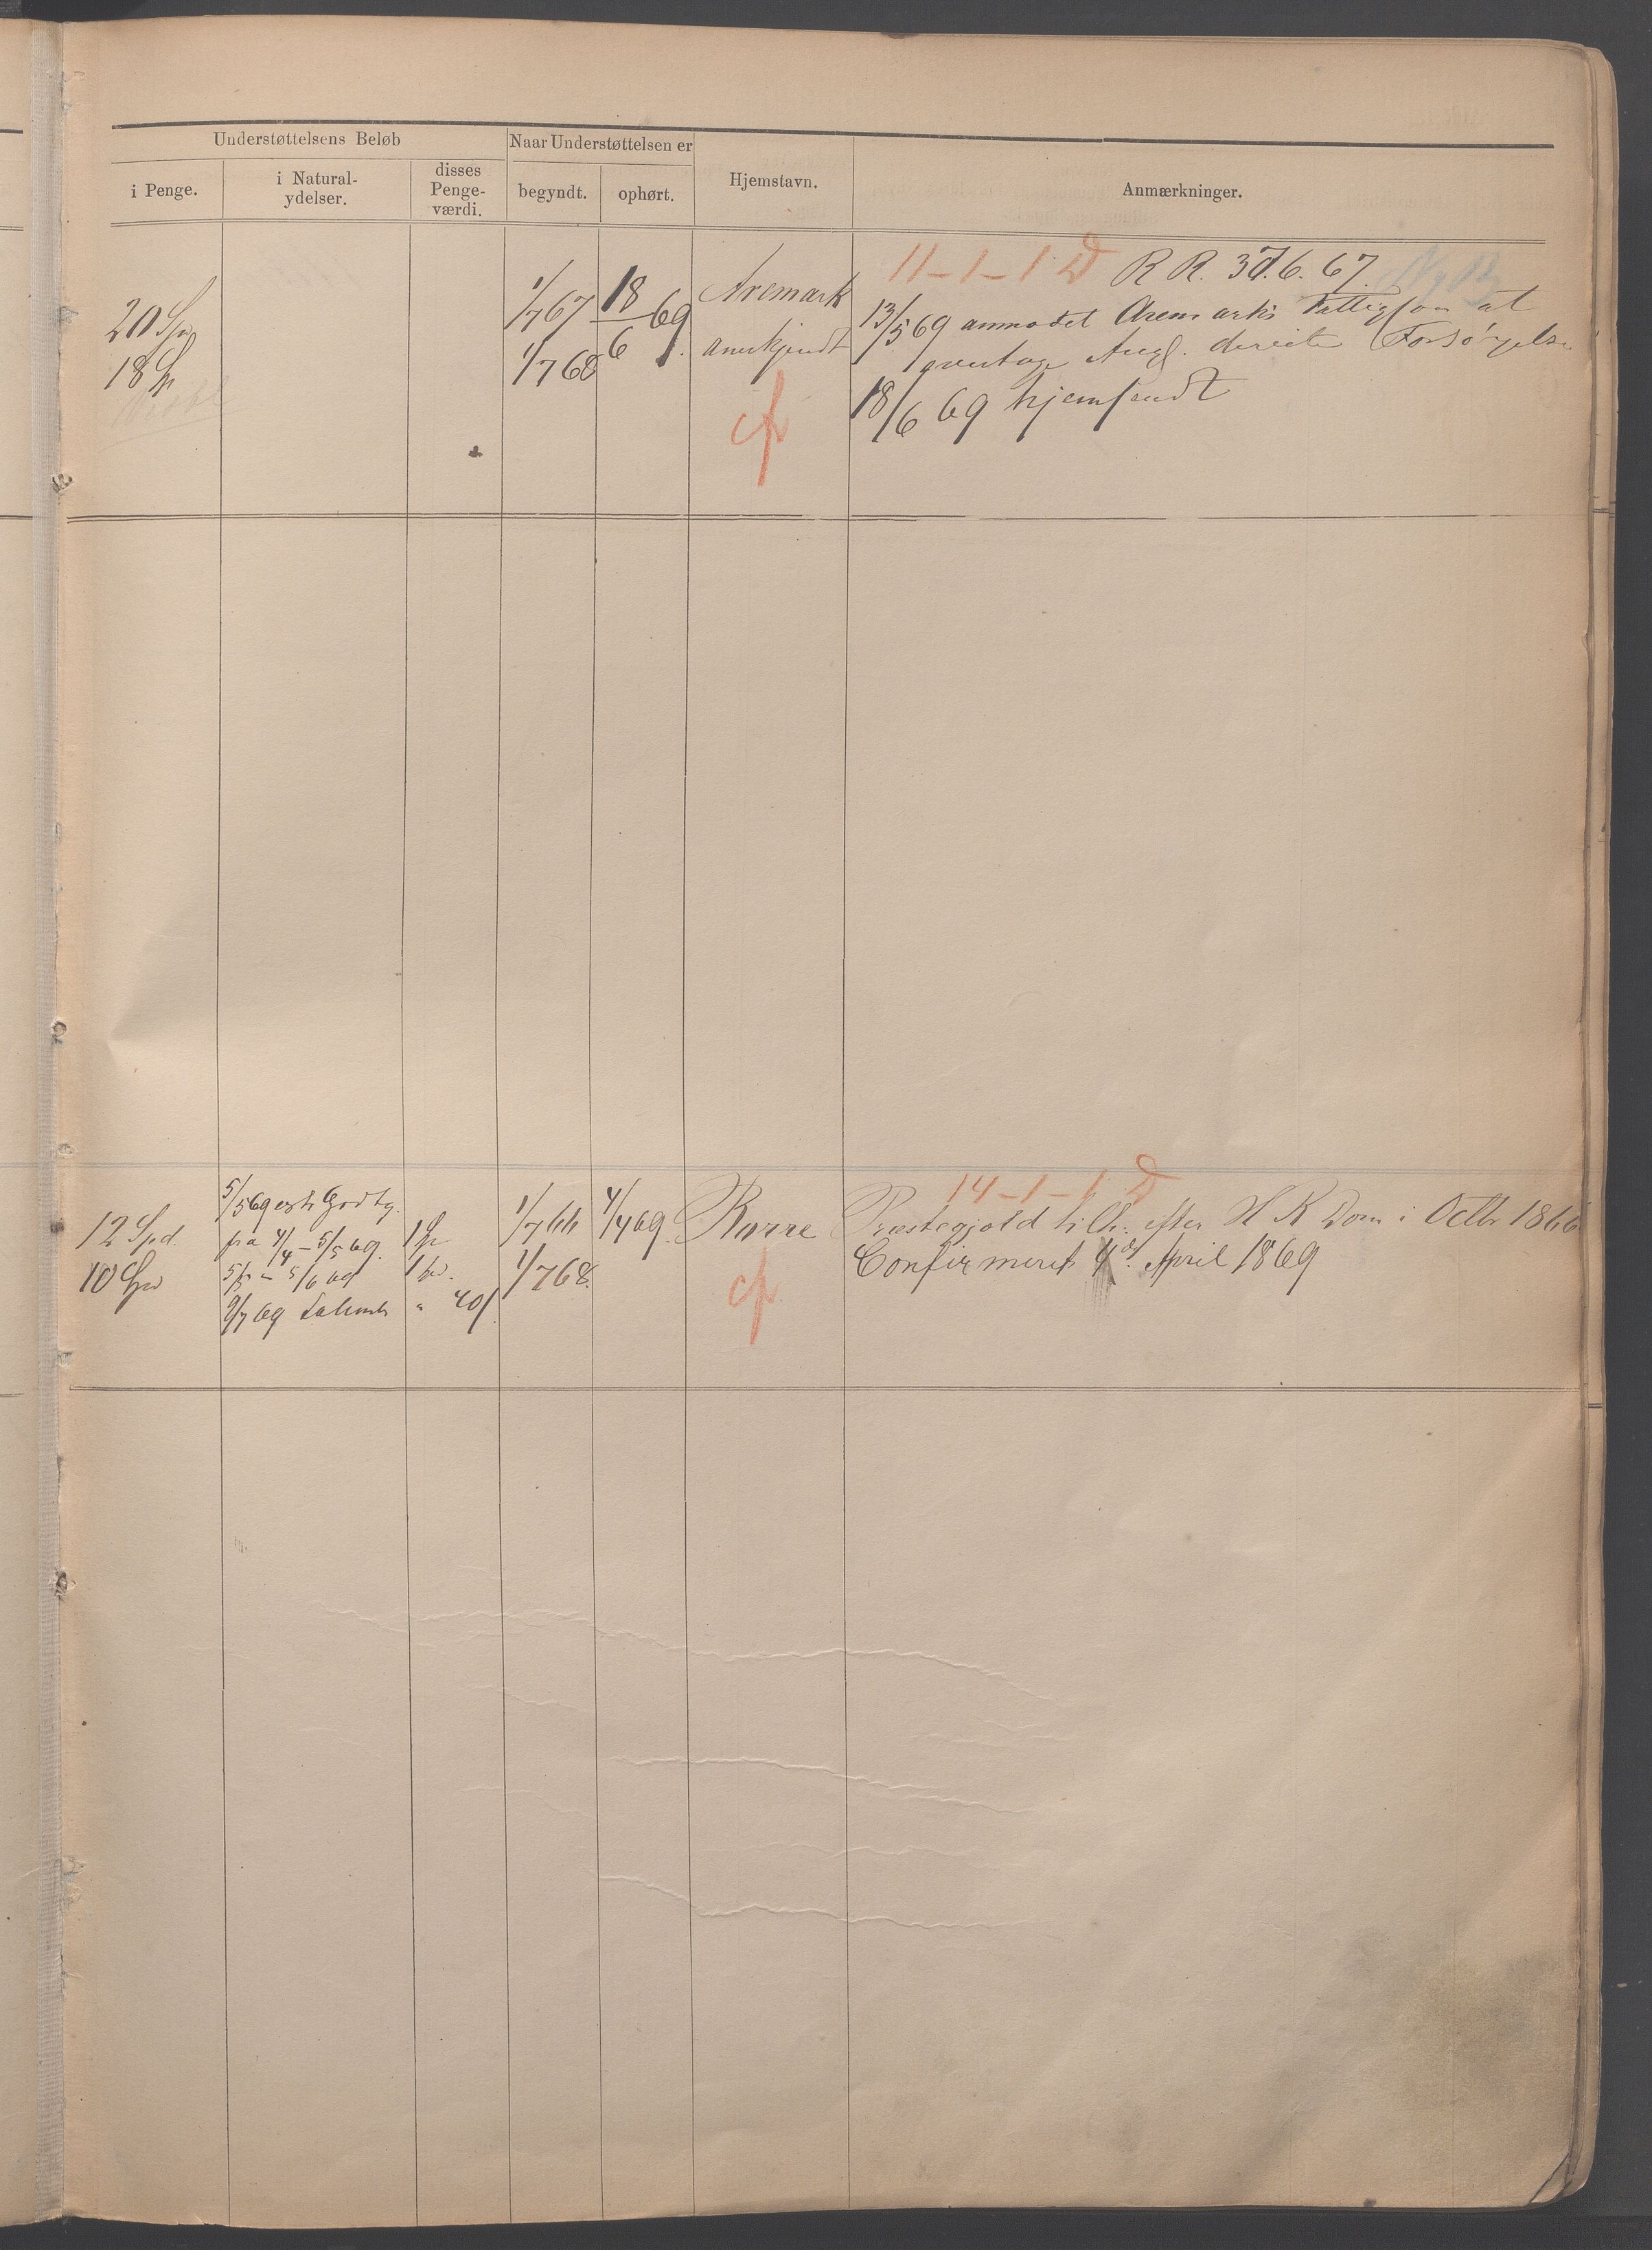 Understøttelsens Beløb
Naar Understøttelsen er
i Penge.
i Natural-
ydelser.
disses
Penge-
værdi.
begyndt.
ophørt.
Hjemstavn.
Anmærkninger.
11-1-1 D R R. 37.6.67.
20 Spd
18 Sp
1/7 67
1/7 68
18/6 69
Aremark
anerkjendt
cf
13/5 69 anmodet Aremarks Fattigkom at
overtage Angl. direite Forsørgelse
18/6 69 hjemsendt
14-1-1 D
12 Spd.
10 Spd
5/5 69 exstr Godtg.
fra 4/4 - 5/5 69. 1 Sp
5/5 - 5/6 69 1 sp.
9/7 69 " 40 s
1/7 66
1/7 68.
4/4 69
Borre
cf
Præstegjeld tilk. efter H K Dom i Octbr 1866
Confirmeret 4de April 1869